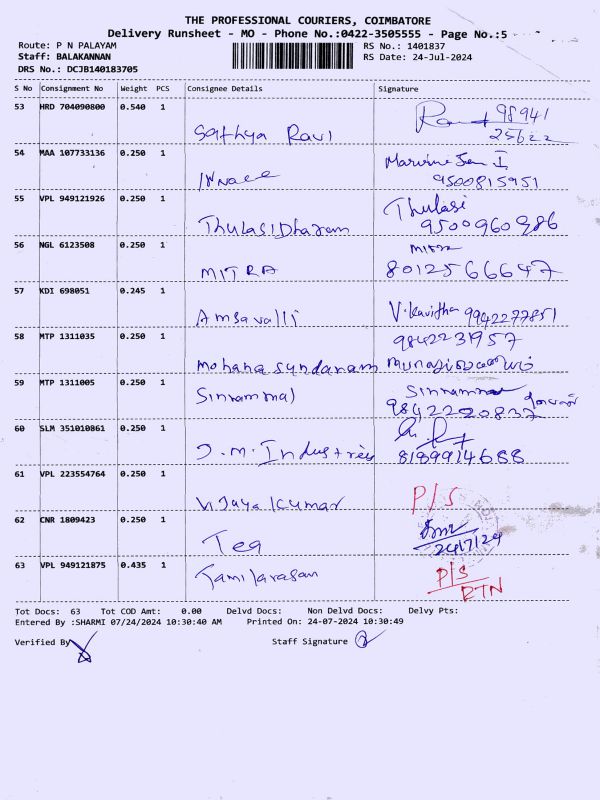 THE PROFESSIONAL COURIERS, COIMBATORE
Delivery Runsheet - MO - Phone No.:0422-3505555 - Page No.:5
Route: P N PALAYAM RS No.: 1401837
Staff: BALAKANNAN RS Date: 24-Jul-2024
DRS No.: DCJB140183705
S No Consignment No Weight PCS Consignee Details Signature
53 HRD 704090800 0.540 1
Sathya Ravi 98941 25622
54 MAA 107733136 0.250 1
9500815951
55 VPL 949121926 0.250 1 Thulasi
ThulasiDharam 9500960986
56 NGL 6123508 0.250 1
MITRA 8012566647
57 KDI 698051 0.245 1
Amsavalli V.Kavitha 9942277851
58 MTP 1311035 0.250 1 9842231957
Mohana sundaram
59 MTP 1311005 0.250 1
Sinnammal 9842220837
60 SLM 351010861 0.250 1
J.M. Industries 8189914688
61 VPL 223554764 0.250 1
Vijaya Kumar P/S
62 CNR 1809423 0.250 1
Tea 24/7/24
63 VPL 949121875 0.435 1 P/S
Tamilarasan RTN
Tot Docs: 63 Tot COD Amt: 0.00 Delvd Docs: Non Delvd Docs: Delvy Pts:
Entered By :SHARMI 07/24/2024 10:30:40 AM Printed On: 24-07-2024 10:30:49
Verified By Staff Signature